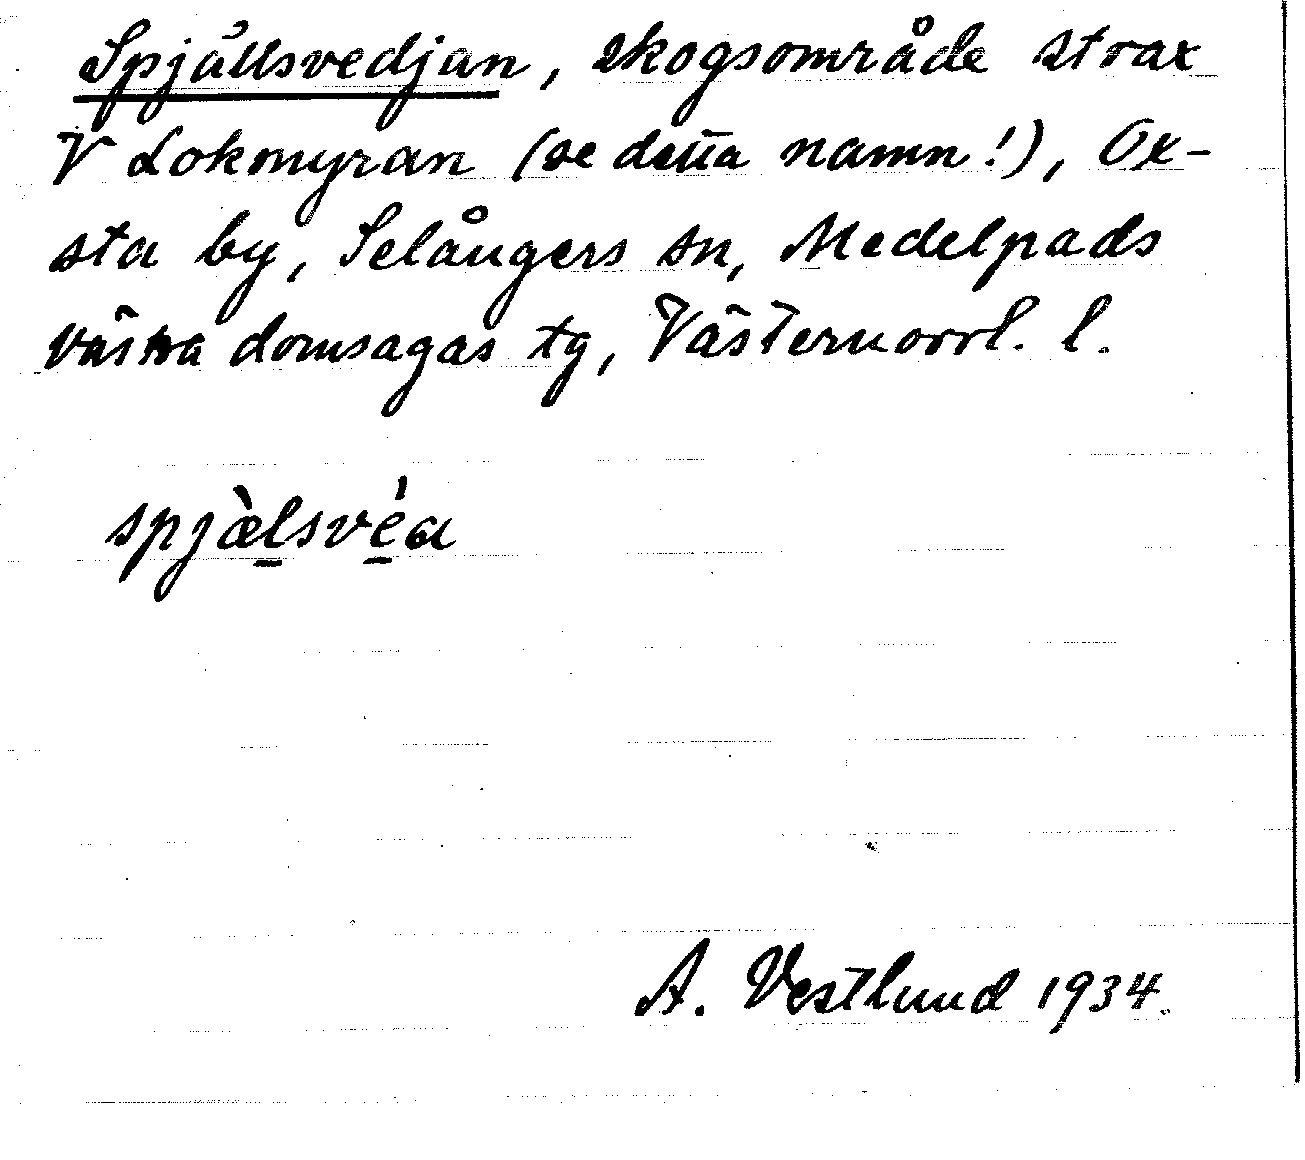 Spjällsvedjan, skogsområde strax
V Lokmyran (se detta namn!), Öx-
sta by, Selångers sn, Medelpads
västra domsagas tg, Västernorrl. l.
spjæ̀lsvéa
A. Vestlund 1934.